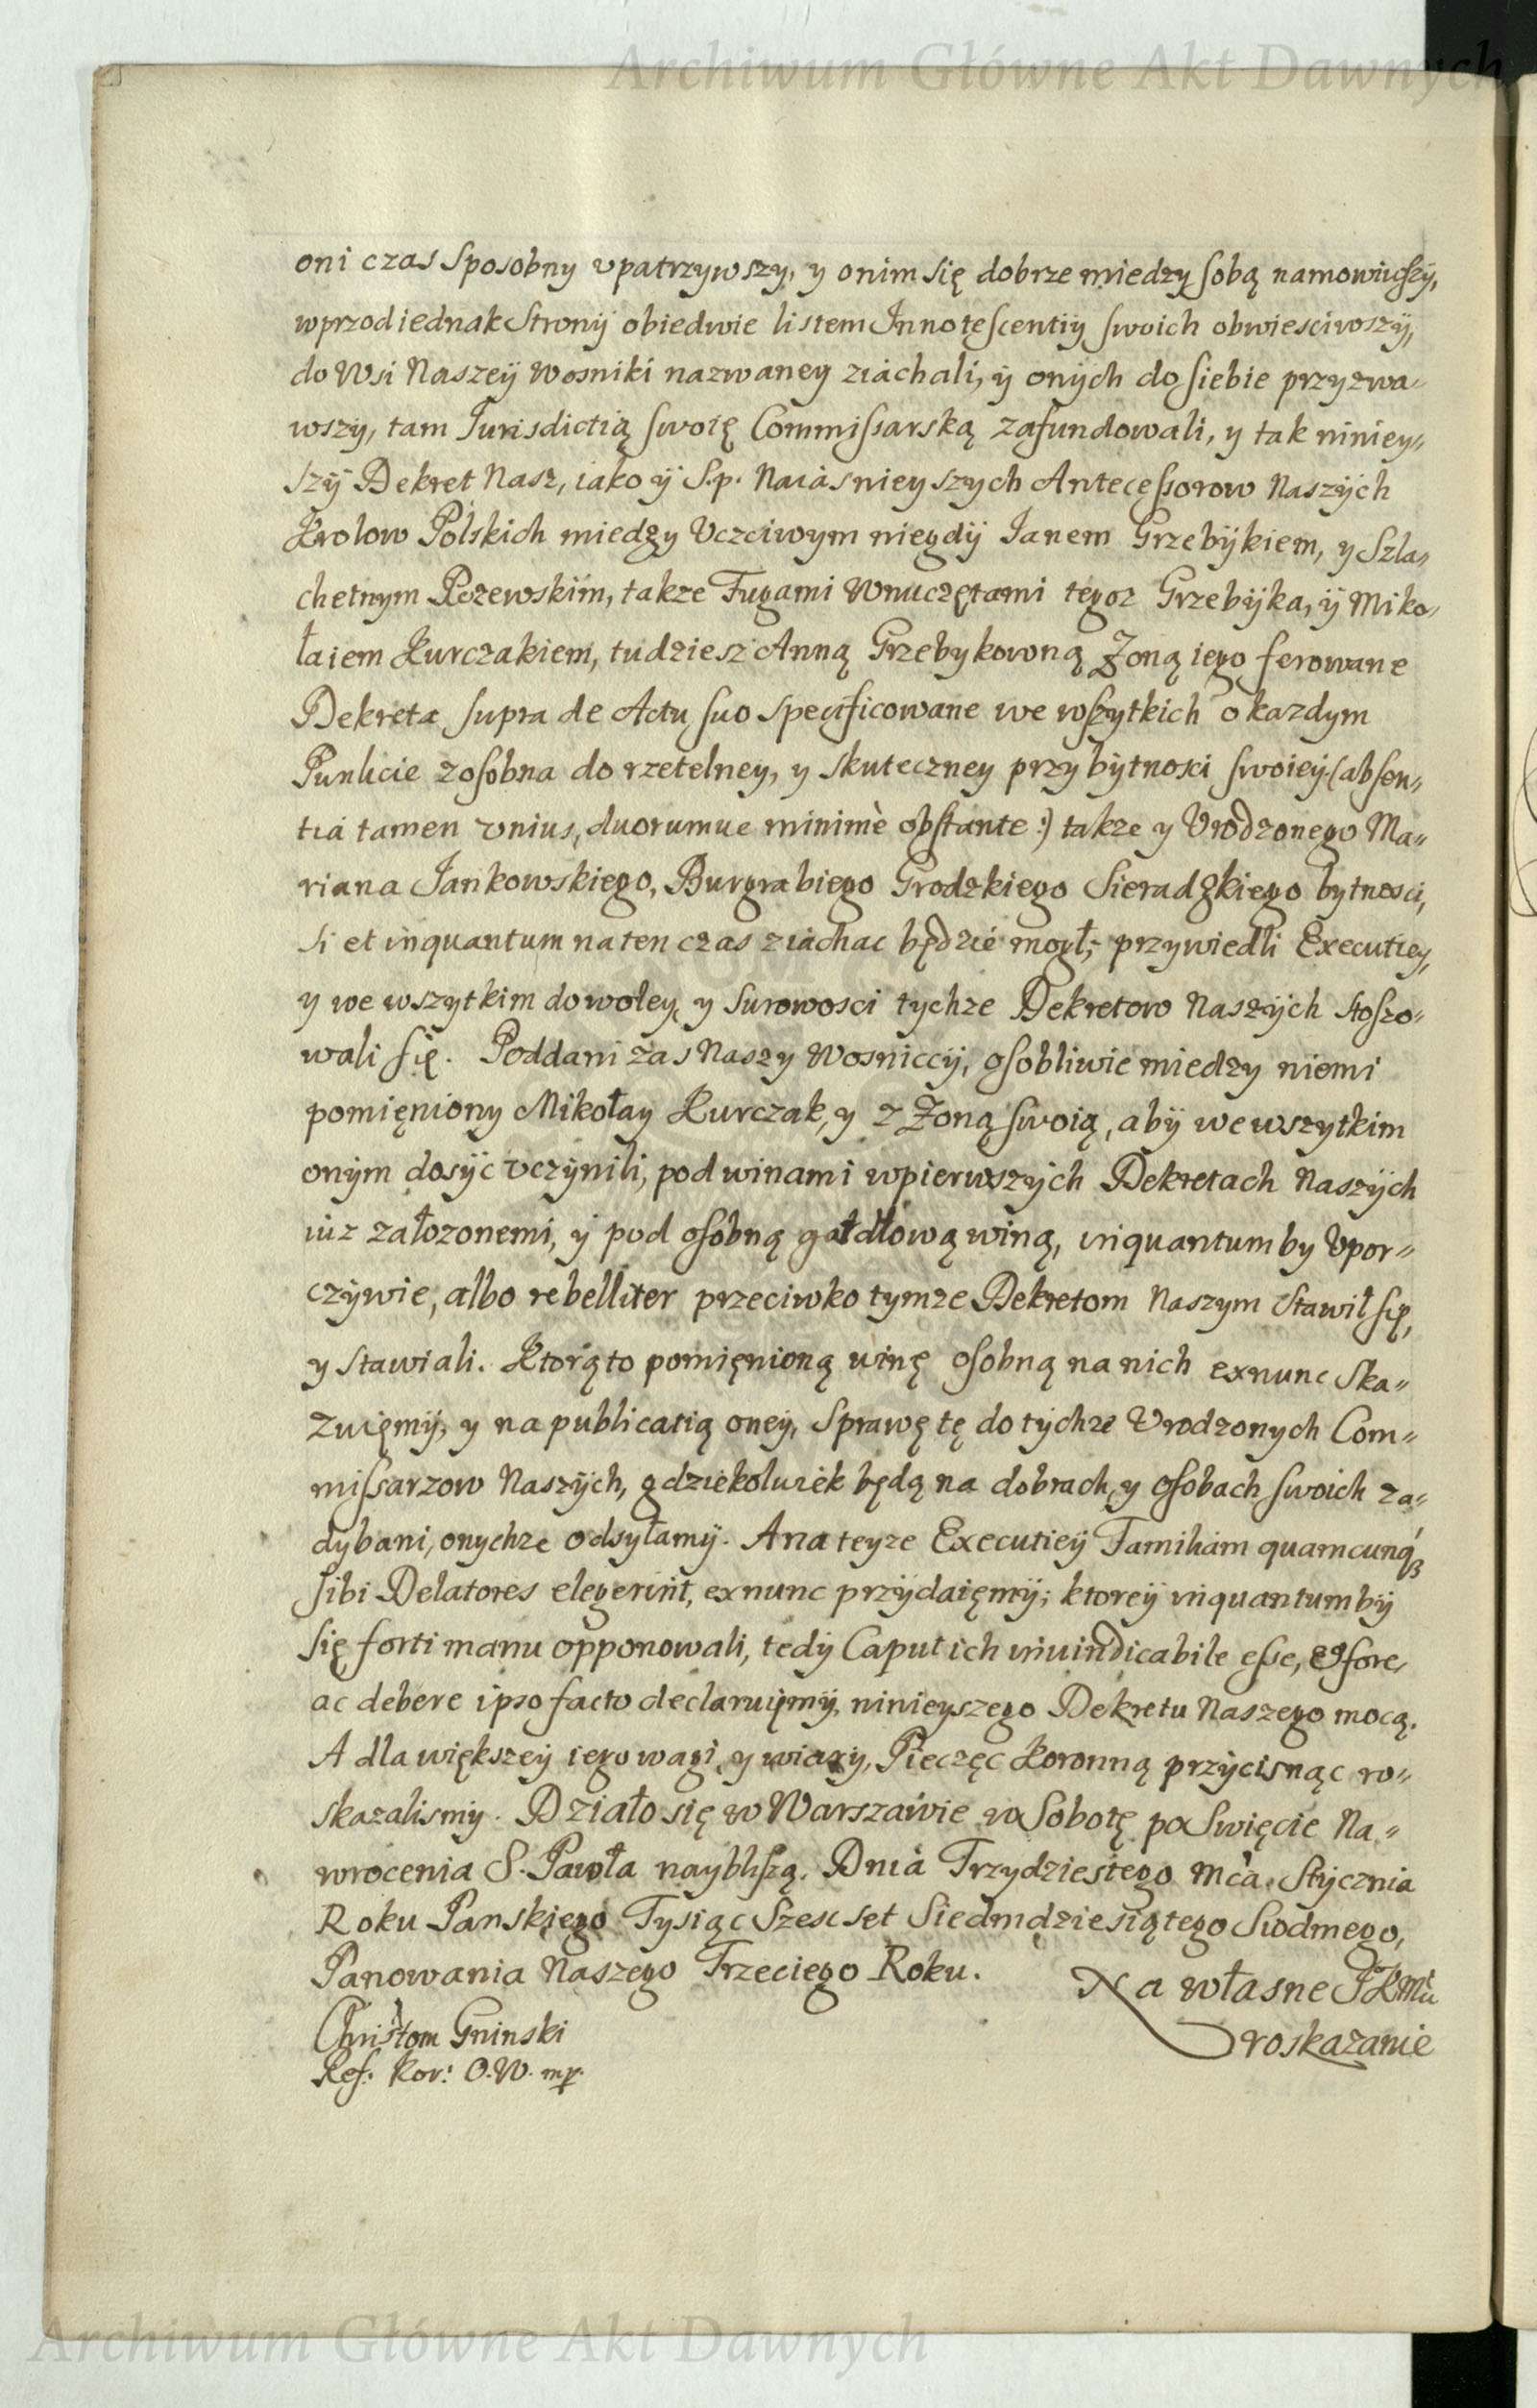 Archiwum Główne Akt Dawnych
oni czas sposobny upatrzywszy, y onim się dobrze miedzy sobą namowiwszy,
wprzod iednak Strony obiedwie listem Innotescentiy swoich obwiesciwszy,
do Wsi Naszey Wosniki nazwaney ziachali, y onych do siebie przyzwa„
wszy, tam Iurisdictią swoię Commissarską zafundowali, y tak niniey„
szy Dekret Nasz, iako y S.p. Naiasnieyszych Antecessorow Naszych
Krolow Polskich miedzy Vczciwym niegdy Ianem Grzebykiem, y Szla„
chetnym Rozewskim, takze Fugami Wnuczętami tegoz Grzebyka, y Miko„
łaiem Kurczakiem, tudziesz Anną Grzebykowną Zoną iego ferowane
Dekreta supra de Actu suo specificowane we wszytkich o kazdym
Punkcie zosobna do rzetelney, y skuteczney przybytnosci swoiey (absen„
tia tamen vnius, duorumue minimè obstante:) takze y Vrodzonego Ma„
riana Iankowskiego, Burgrabiego Grodzkiego Sieradzkiego bytnosci,
si et inquantum na ten czas ziachac będzie mogł, przywiedli Executiey,
y we wszytkim do woley, y surowosci tychze Dekretow Naszych stoso„
wali się. Poddani zas Naszy Wosniccy, osobliwie miedzy niemi
pomięniony Mikołay Kurczak, y z Zoną swoią, aby we wszytkim
onym dosyc vczynili, pod winami w pierwszych Dekretach Naszych
iuz załozonemi, y pod osobną gatdłową winą, inquantumby Vpor„
czywie, albo rebelliter przeciwko tymze Dekretom Naszym stawił się,
y stawiali. Ktorą to pomięnioną winę osobną na nich exnunc ska„
zuięmy, y na publicatią oney, Sprawę tę do tychze Vrodzonych Com„
missarzow Naszych, gdziekolwiek będą na dobrach, y osobach swoich za„
dybani, onychze odsyłamy. A na teyze Executiey Familiam quamcunq́ꝫ
sibi Delatores elegerint, exnunc przydaięmy; ktorey inquantumby
się forti manu opponowali, tedy Caput ich inuindicabile esse, et fore,
ac debere ipso facto declaruięmy, ninieyszego Dekretu Naszego mocą.
A dla większey iego wagi, y wiary, Pieczęc Koronną przycisnąc ro„
skazalismy. Działo się w Warszawie w Sobotę po Swięcie Na„
wrocenia S. Pawła naybliszą. Dnia Trzydziestego Mca Stycznia
Roku Panskiego Tysiąc Szescset Siedmdziesiątego Siodmego,
Panowania Naszego Trzeciego Roku.
Na własne JKMci
roskazanie
Christom Gninski
Ref: Kor: O.W. mp.
Archiwum Główne Akt Dawnych